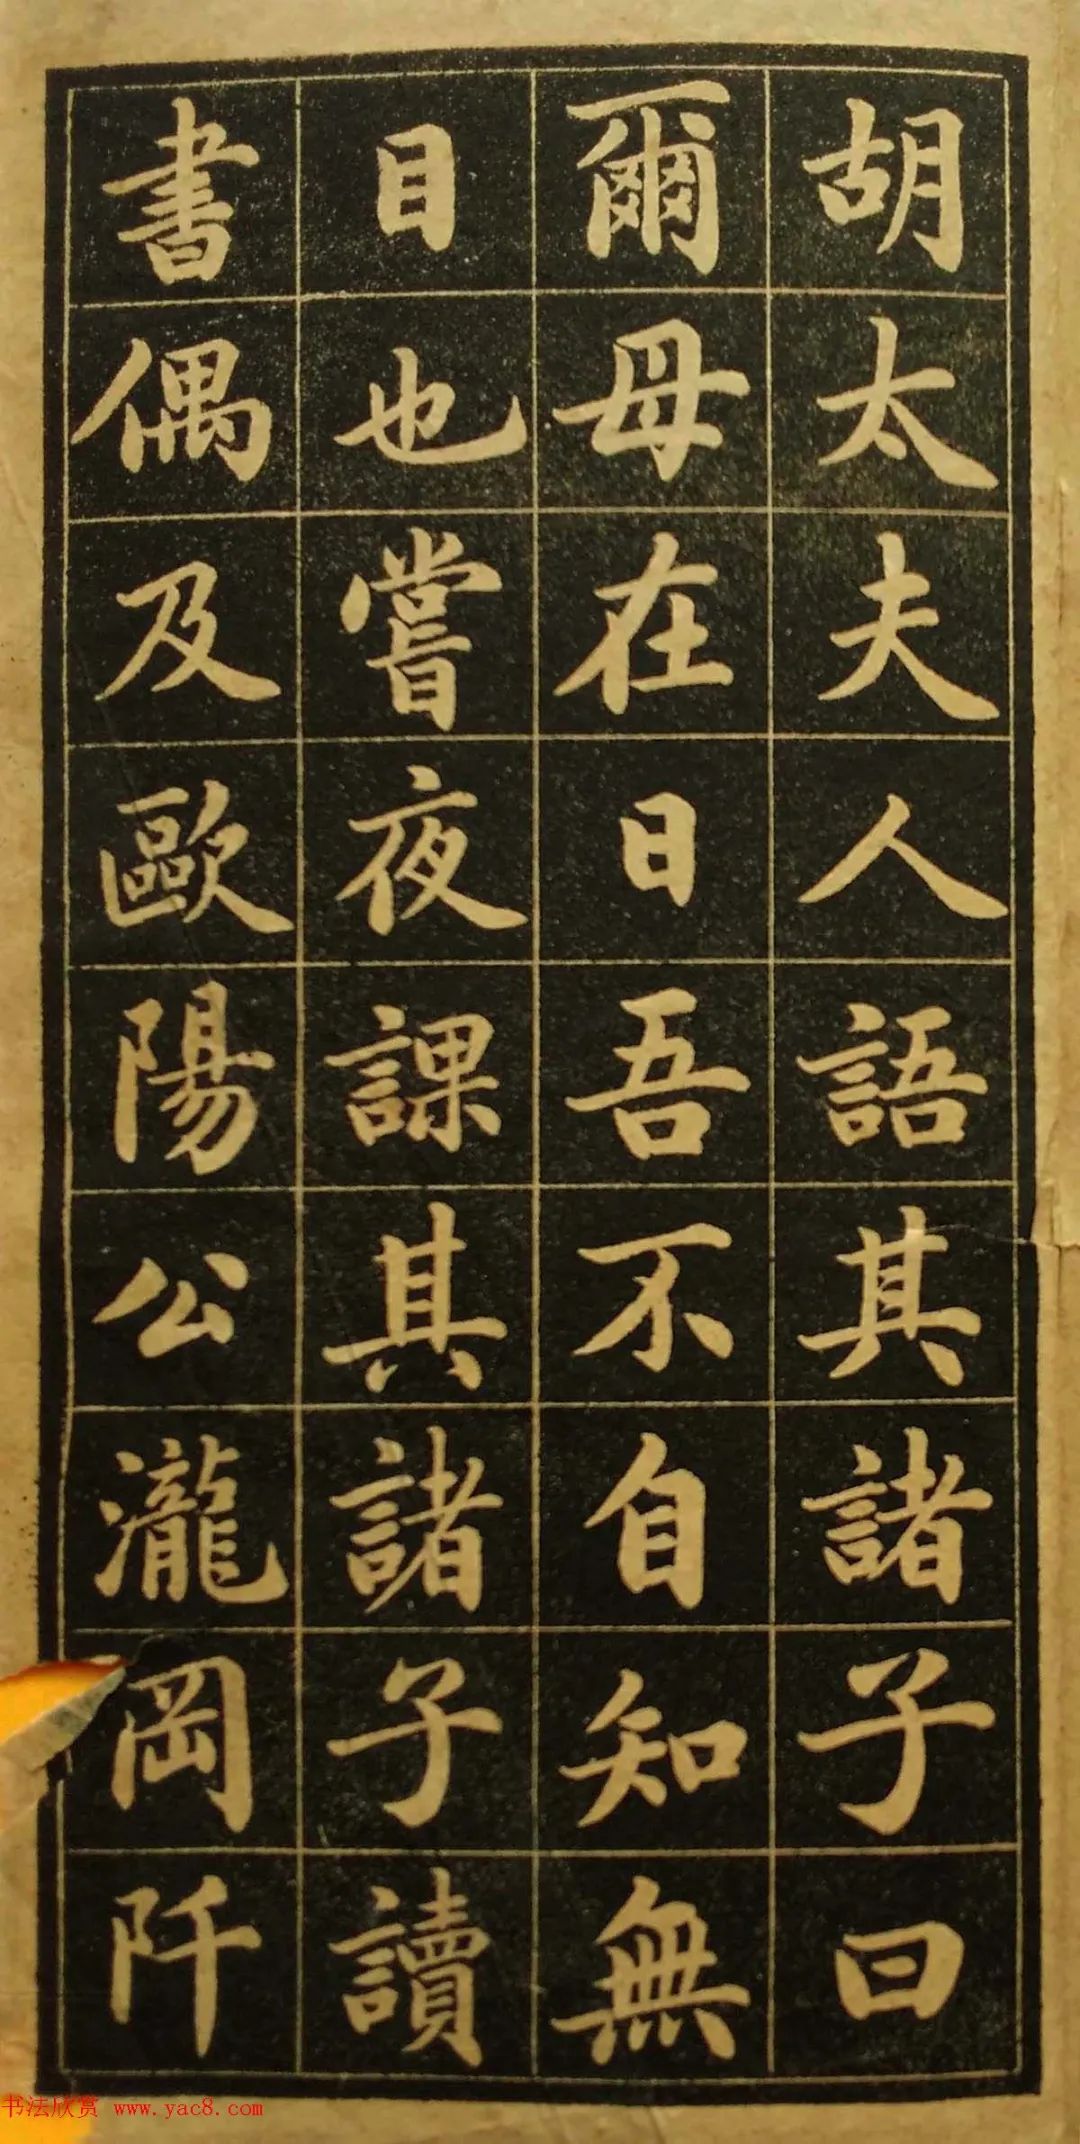 胡太夫人語其諸子曰
爾母在日吾不自知無
目也嘗夜課其諸子讀
書偶及歐陽公瀧岡阡
书法欣赏 www.yac8.com